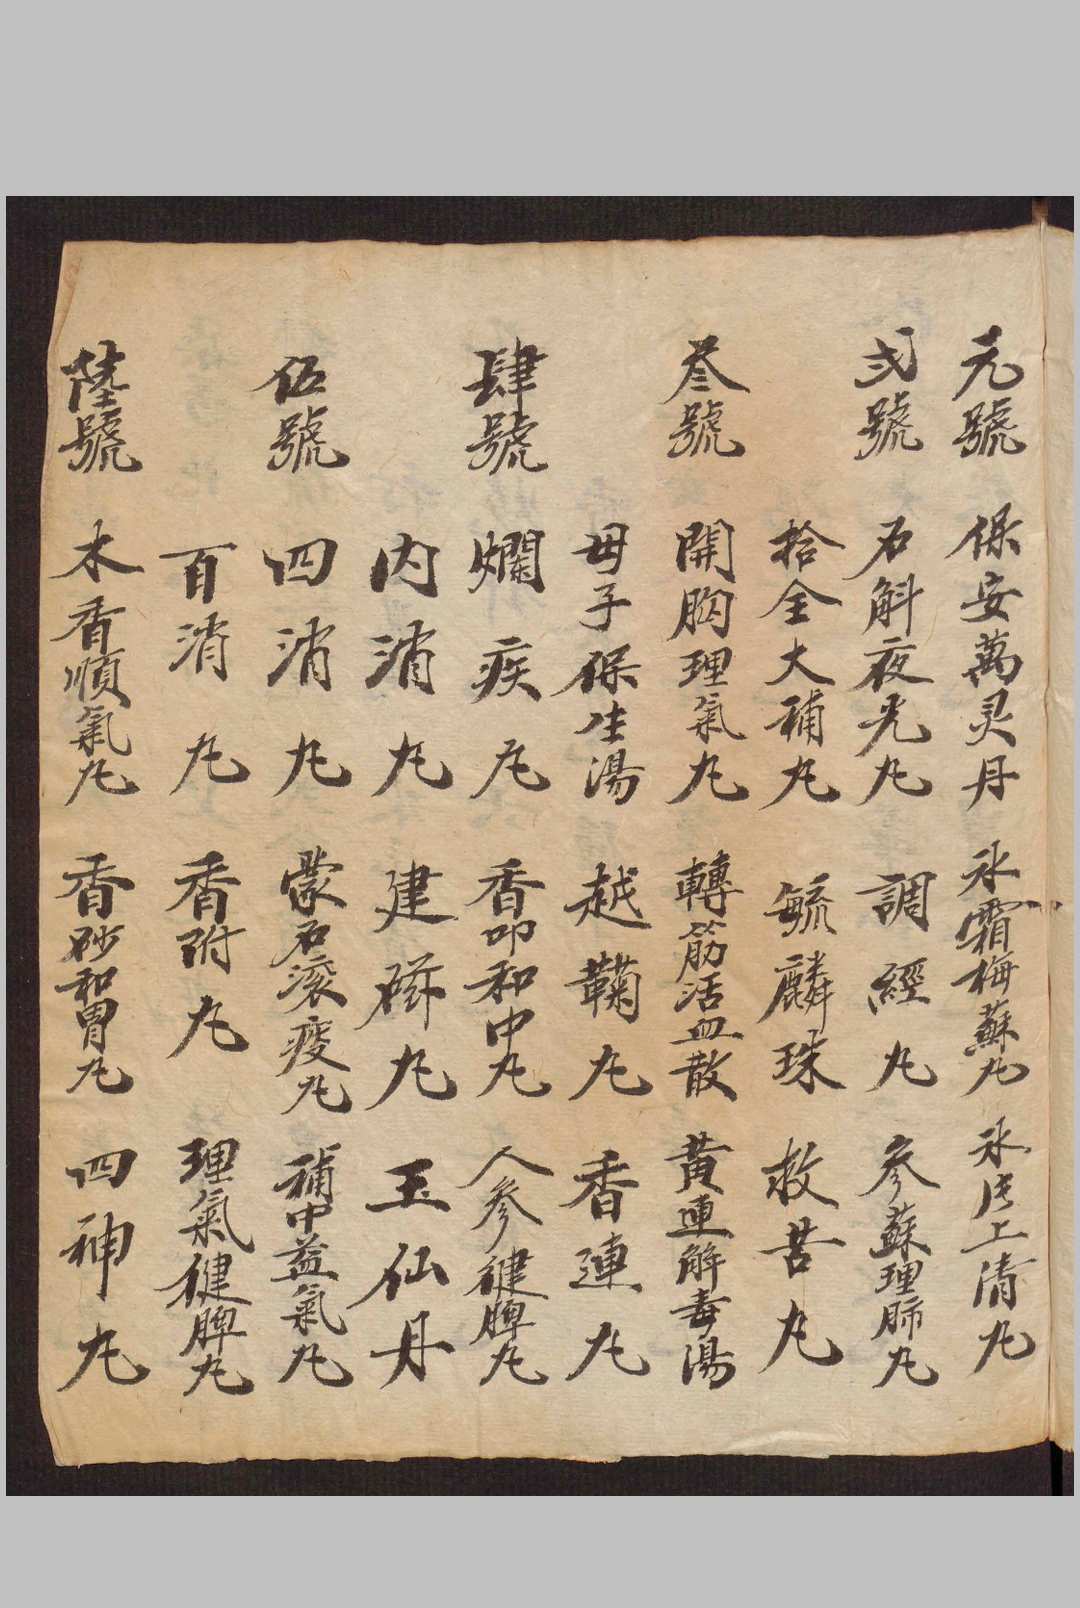 元號 保安萬灵丹 氷霜梅蘇丸 氷片上清丸
弍號 石斛夜光丸 調經丸 參蘇理肺丸
拾全大補丸 毓麟珠 救苦丸
叁號 開胸理氣丸 轉筋活血散 黃連解毒湯
母子保生湯 越鞠丸 香連丸
肆號 爛疾丸 香叩和中丸 人參健脾丸
內消丸 建磁丸 玉仙丹
伍號 四消丸 蒙石滚痰丸 補中益氣丸
百消丸 香附丸 理氣健脾丸
陸號 木香順氣丸 香砂和胃丸 四神丸